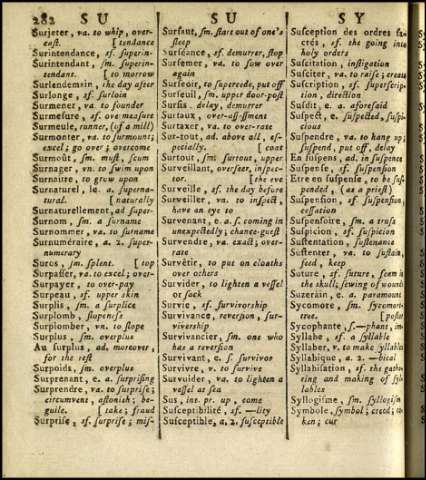 282 S U S U S Y
Surjeter, va. to whip, over-
cast. [tendance
Surintendance, sf. superin-
Surintendant, sm. superin-
tendant. [to morrow
Surlendemain, the day after
Surlonge, sf. surloin
Surmener, va. to founder
Surmesure, sf. ove measure
Surmeule, runner, (of a mill)
Surmonter, va. to surmount;
excel; go over; overcome
Surmoût, sm. must, scum
Surnager, vn. to swim upon
Surnaître, to grow upon
Surnaturel, le, a. superna-
tural. [naturally
Surnaturellement, ad super-
Surnom, sm. a surname
Surnommer, va. to surname
Surnuméraire, a. 2. super-
numerary
Suros, sm. splent. [top
Surpasser, va. to excel; over-
Surpayer, to over-pay
Surpeau, sf. upper skin
Surplis, sm. a surplice
Surplomb, slopeness
Surplomber, vn. to slope
Surplus, sm. overplus
Au surplus, ad. moreover,
for the rest
Surpoids, sm. overplus
Surprenant, e a. surprising
Surprendre, va. to surprise;
circumvent, astonish; be-
guile. [take; fraud
Surprise, sf. surprise; mis-
Sursaut, sm. start out of one's
sleep
Surséance, sf. demurrer, stop
Sursemer, va. to sow over
again
Surseoir, to supercede, put off
Surseuil, sm. upper door-post
Sursis, delay, demurrer
Surtaux, over-assessment
Surtaxer, va. to over-rate
Sur-tout, ad. above all, es-
pecially. [coat
Surtout, sm. surtout, upper
Surveillant, overseer, inspec-
tor. [the eve
Surveille, sf. the day before
Surveiller, va. to inspect,
have an eye to
Survenant, e a. s. coming in
unexpectedly, chance-guest
Survendre, va. exact; over-
rate
Survêtir, to put on cloaths
over others
Survider, to lighten a vessel
or sack
Survie, sf. survivorship
Survivance, reversion, sur-
vivership
Survivancier, sm. one who
has a reversion
Survivant, e s. survivor
Survivre, va. to survive
Survuider, va. to lighten a
vessel at sea
Sus, int. pr. up, come
Susceptibilité, sf. —lity
Susceptible, a. 2. susceptible
Susception des ordres sa-
crés, sf. the going into
holy orders
Suscitation, instigation
Susciter, va. to raise; create
Suscription, sf. superscrip-
tion, direction
Susdit, e a. aforesaid
Suspect, e suspected, suspi-
cious
Suspendre, va. to hang up;
suspend, put off, delay
En suspens, ad. in suspence
Suspense, sf. suspension
Etre en suspense, to be sus-
pended, (as a priest)
Suspension, sf. suspension,
cessation
Suspensoire, sm. a truss
Suspicion, sf. suspicion
Sustentation, sustenance
Sustenter, va. to sustain,
feed, keep
Suture, sf. suture, seem in
the skull, sewing of wounds
Suzerain, e a. paramount
Sycomore, sm. sycomore-
tree.
Sycophante, s.—phant, im-
Syllabe, sf. a syllable
Syllaber, va. to make syllables
Syllabique, a. 2. —bical
Syllabisation, sf. the gathe-
ring and making of syl-
lables
Syllogisme, sm. syllogism
Symbole, symbol; creed; to-
ken; cut